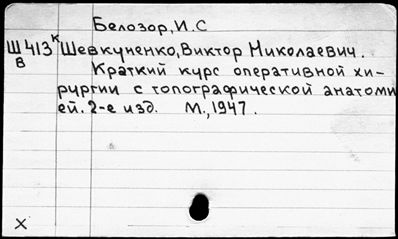 Белозор, И.С
Ш413к Шевкуненко, Виктор Николаевич.
В
Краткий курс оперативной хи-
рургии с топографической анатоми
ей. 2-е изд. М., 1947.
X